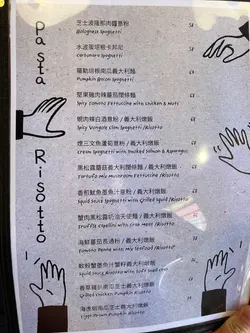 Pasta
Risotto
芝士波隆那肉醬意粉
Bolognese Spaghetti
58
水波蛋培根卡邦尼
Carbonara Spaghetti
羅勒培根南瓜義大利麵
Pumpkin Bacon Spaghetti
堅果雞肉辣蕃茄闊條麵
Spicy Tomato Fettuccine with Chicken & Nuts
蜆肉辣白酒意粉 / 義大利燉飯
Spicy Vongole Clam Spaghetti /Risotto
煙三文魚蘆筍意粉 / 義大利燉飯
Cream Spaghetti with Smoked Salmon & Asparagus
黑松露蘑菇義大利闊條麵 / 義大利燉飯
Tartufo mix mushroom Fettuccine /Risotto
香煎魷魚墨魚汁意粉 / 義大利燉飯
Squid Sauce Spaghetti with Grilled Squid /Risotto
蟹肉黑松露奶油天使麵 / 義大利燉飯
Truffle capellini with crab meat /Risotto
海鮮蕃茄長通粉 / 義大利燉飯
Tomato Penne with mix Seafood /Risotto
軟殼蟹墨魚汁蟹籽義大利燉飯
Squid Sauce Risotto with soft shell crab
香草雞扒南瓜芝士義大利燉飯
Grilled chicken Pumpkin Risotto
海虎蝦南瓜芝士義大利燉飯
Tiger Prawn Pumpkin Risotto